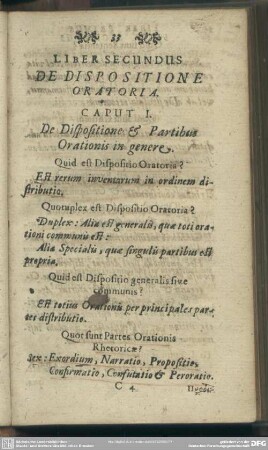 33
LIBER SECUNDUS
DE DISPOSITIONE
ORATORIA.
CAPUT I.
De Dispositione & Partibus
Orationis in genere.
Quid est Dispositio Oratoria?
Est rerum inventarum in ordinem di-
stributio.
Quotuplex est Dispositio Oratoria?
Duplex: Alia est generalis, quæ toti ora-
tioni communis est:
Alia Specialis, quæ singulis partibus est
propria.
Quid est Dispositio generalis sive
communis?
Est totius Orationis per principales par-
tes distributio.
Quot sunt Partes Orationis
Rhetoricæ?
Sex: Exordium, Narratio, Propositio,
Confirmatio, Confutatio & Peroratio.
C 4.